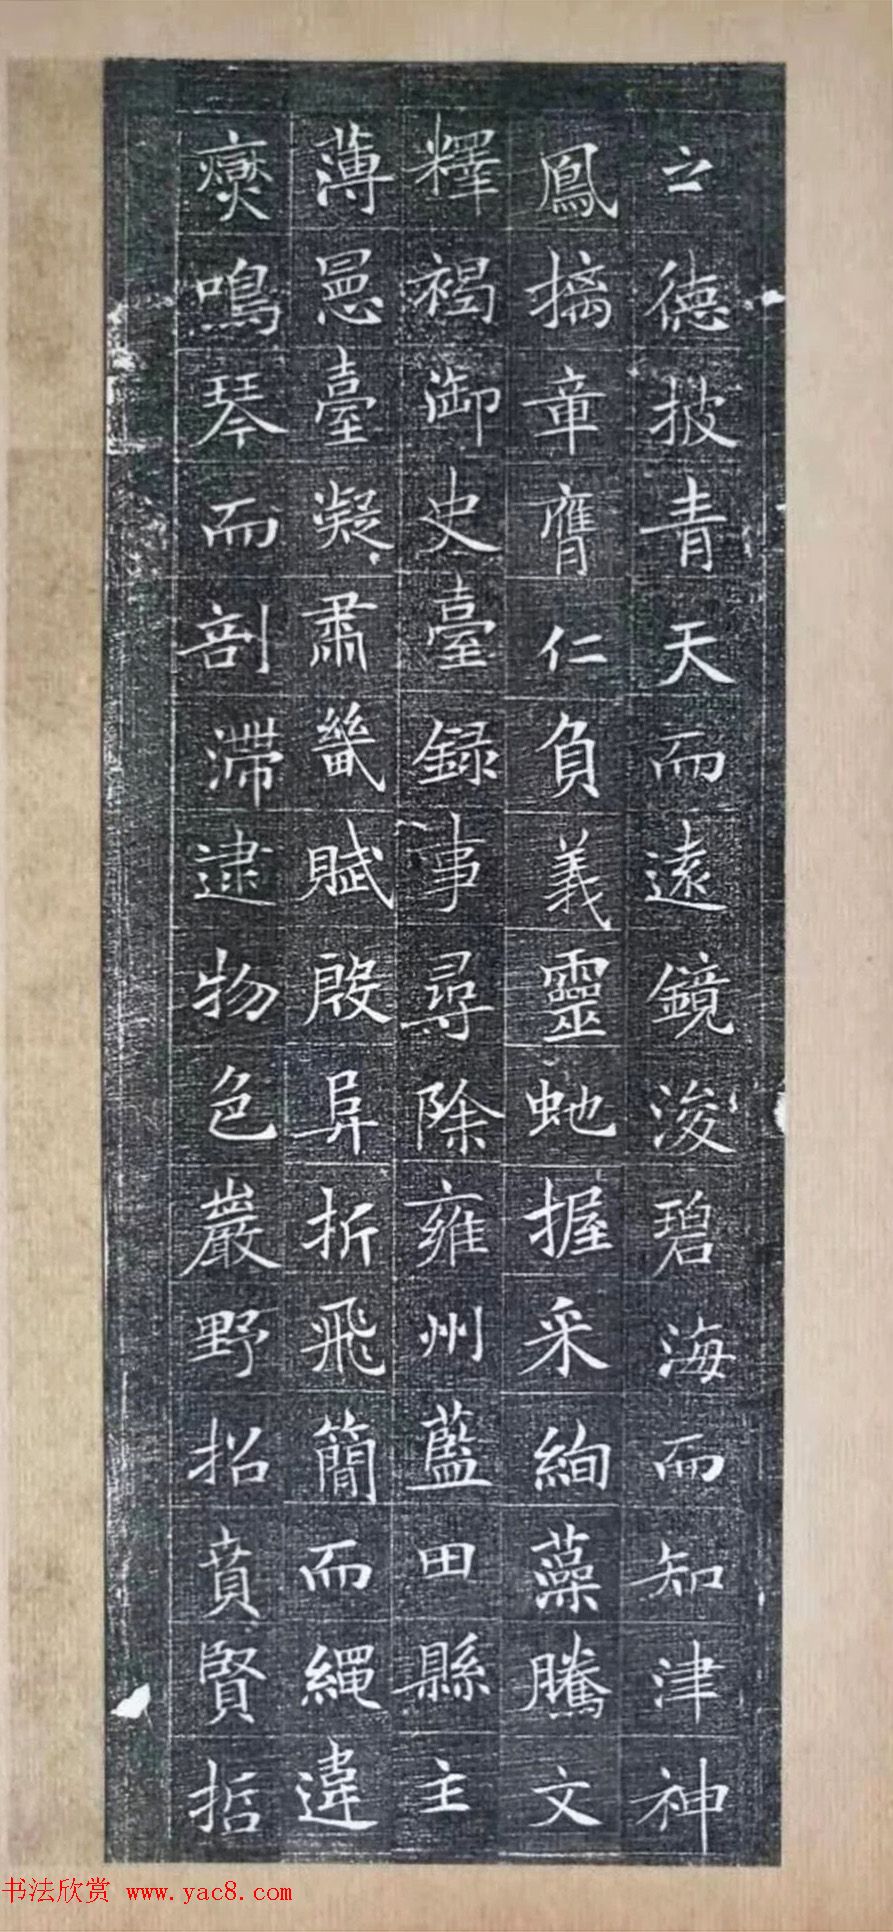 之德披青天而遠鏡浚碧海而知津神
鳳摛章膺仁負義靈虵握采絢藻騰文
釋褐御史臺録事尋除雍州藍田縣主
薄臺凝肅畿賦殷阜折飛簡而繩違
鳴琴而剖滯逮物色巖野招賁賢哲
书法欣赏 www.yac8.com